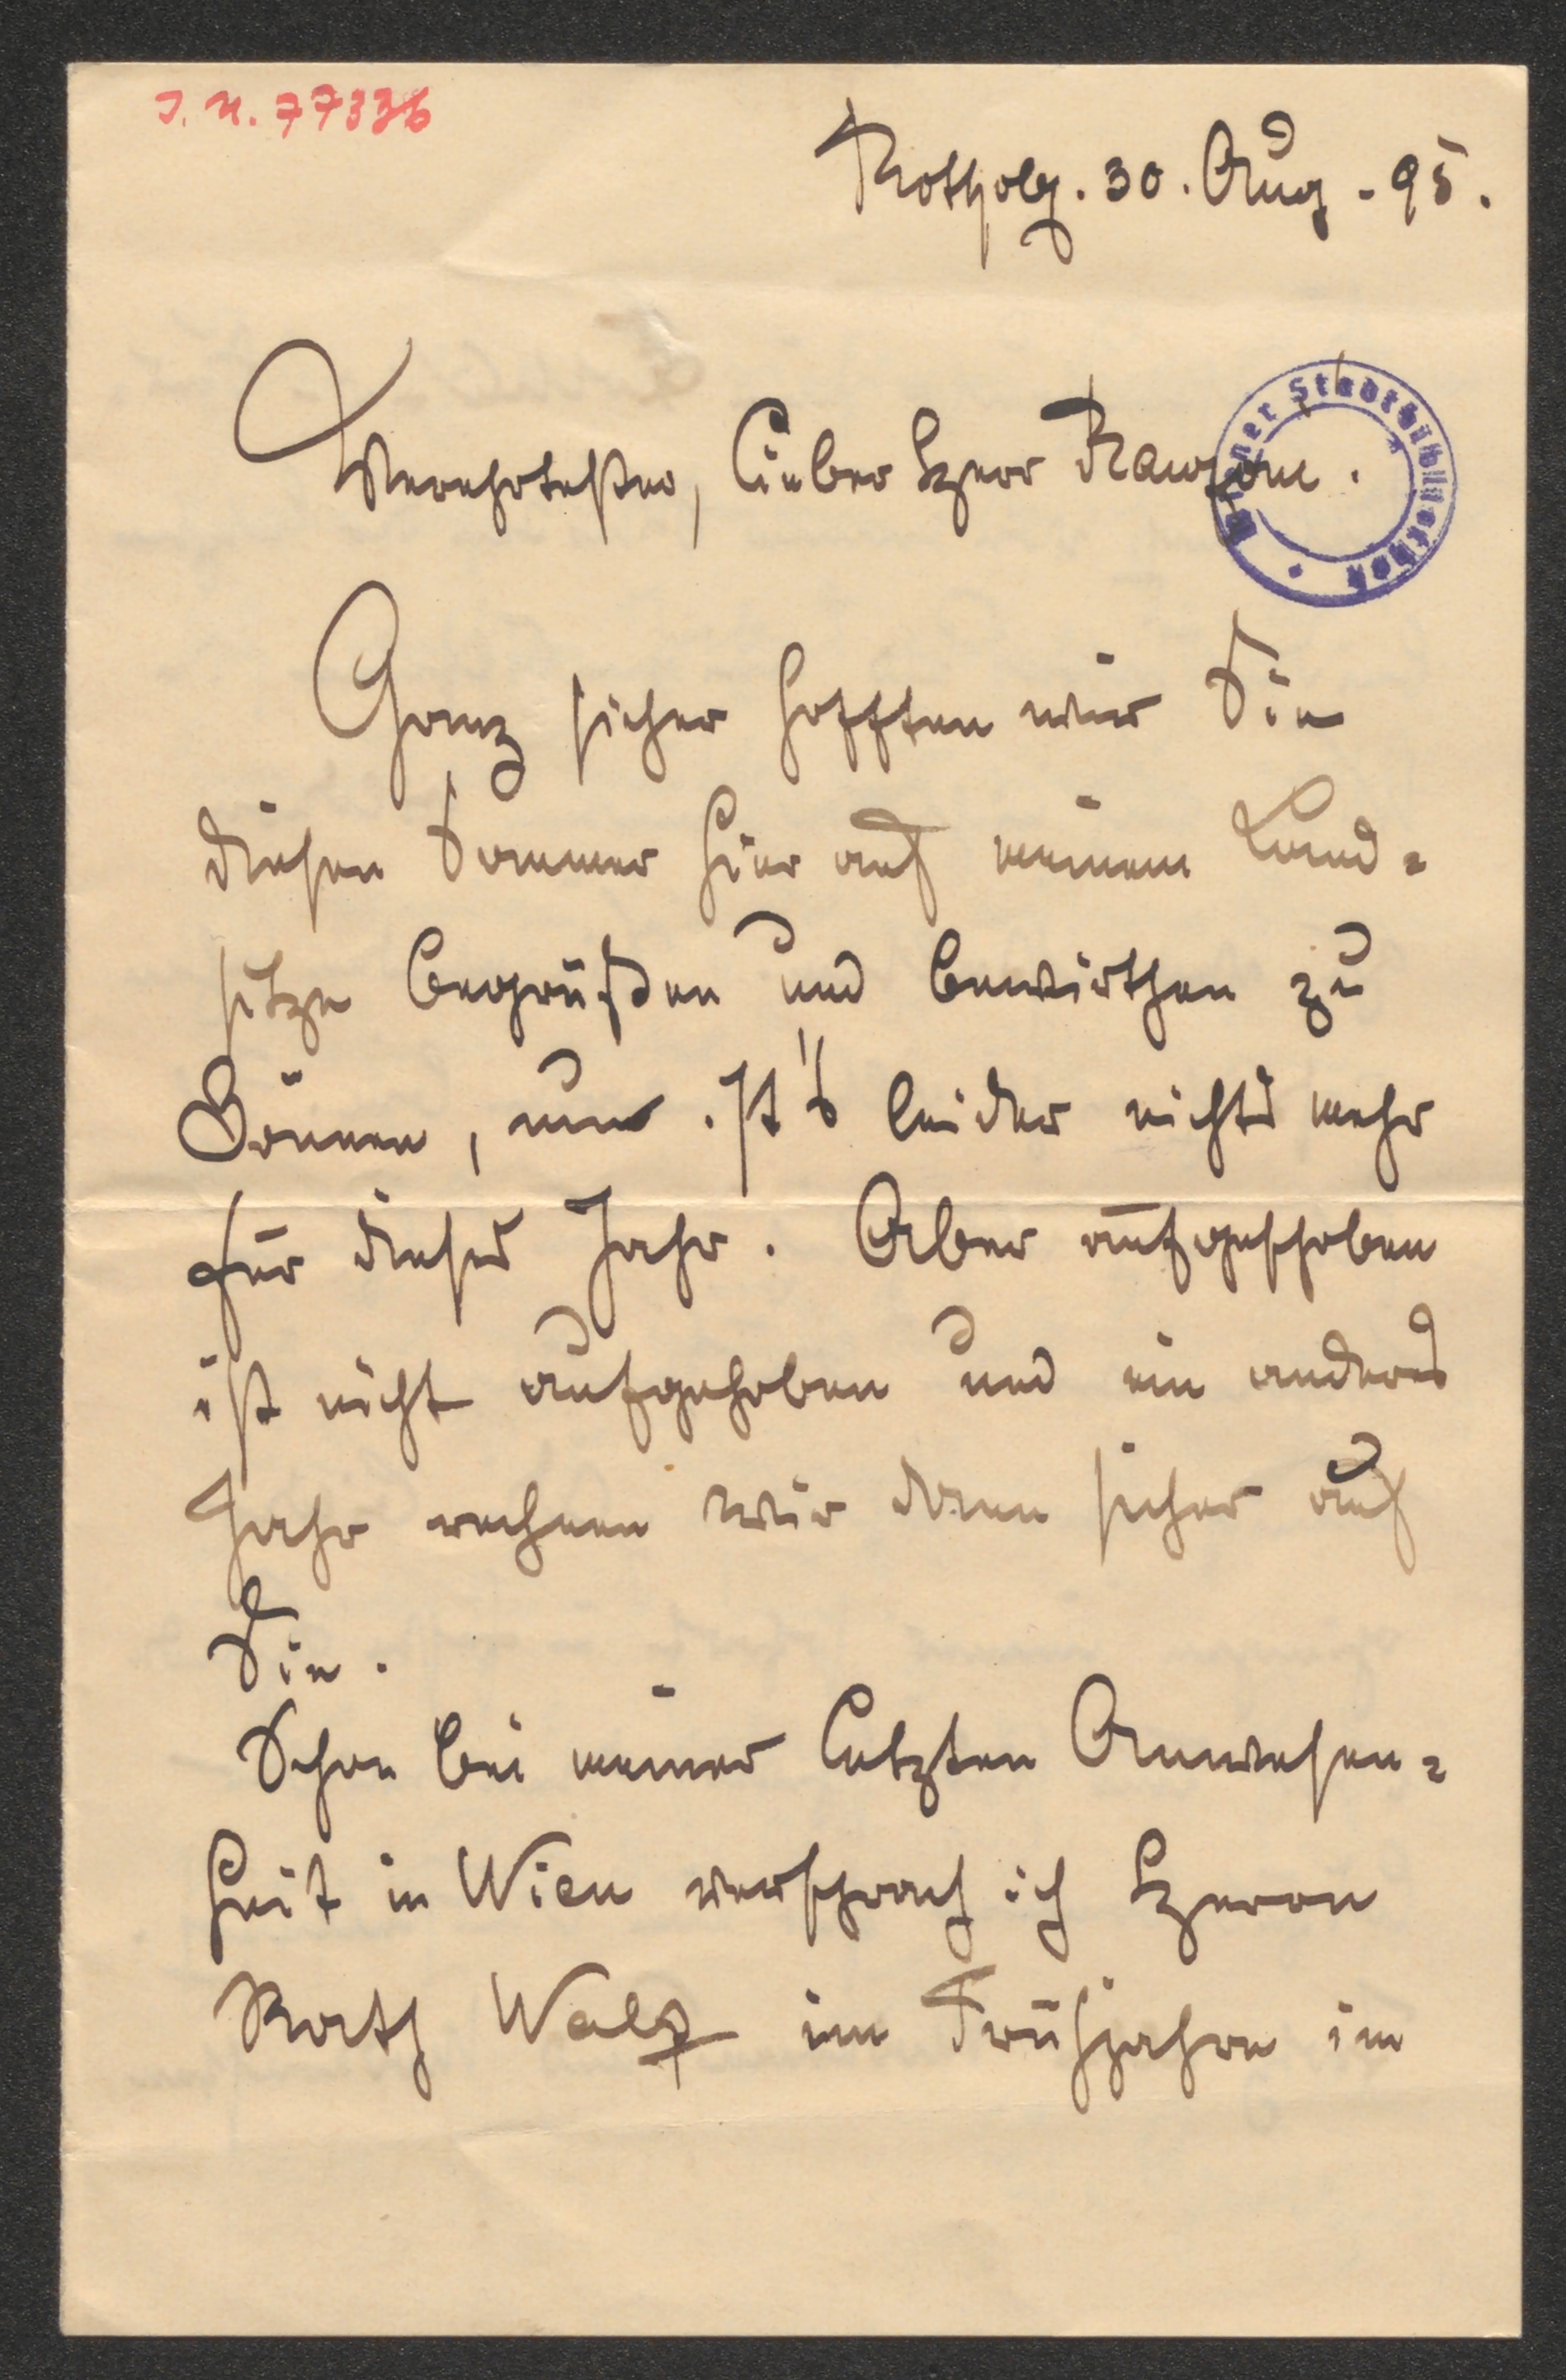 I. N. 77336
Rotholz. 30. Aug. - 95.
Wiener Stadtbibliothek
Verehrtester, lieber Herr
Ganz sicher hofften wir Sie
diesen Sommer hier auf meinem Land=
sitze begrüßen und bewirthen zu
können, nun ist's leider nichts mehr
für dieses Jahr. Aber aufgeschoben
ist nicht aufgehoben und ein anderes
Jahr rechnen wir dann sicher auf
Sie.
Schon bei meiner letzten Anwesen=
heit in Wien versprach ich Herrn
Rath im Frühjahre im